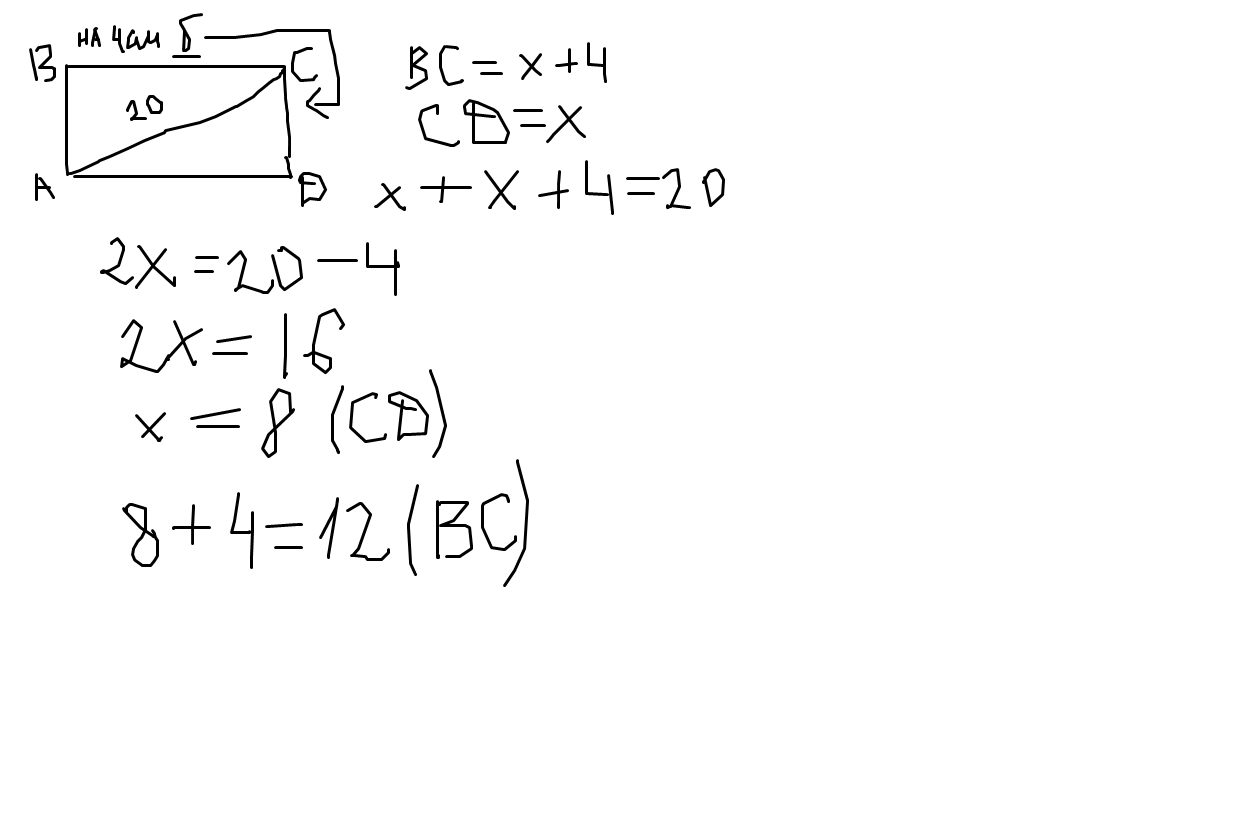 на 4см б
B C
20
A D
BC = x+4
CD = x
x + x + 4 = 20
2x = 20 - 4
2x = 16
x = 8 (CD)
8 + 4 = 12 (BC)